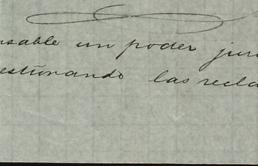 nsable un poder jur
estionando las recla